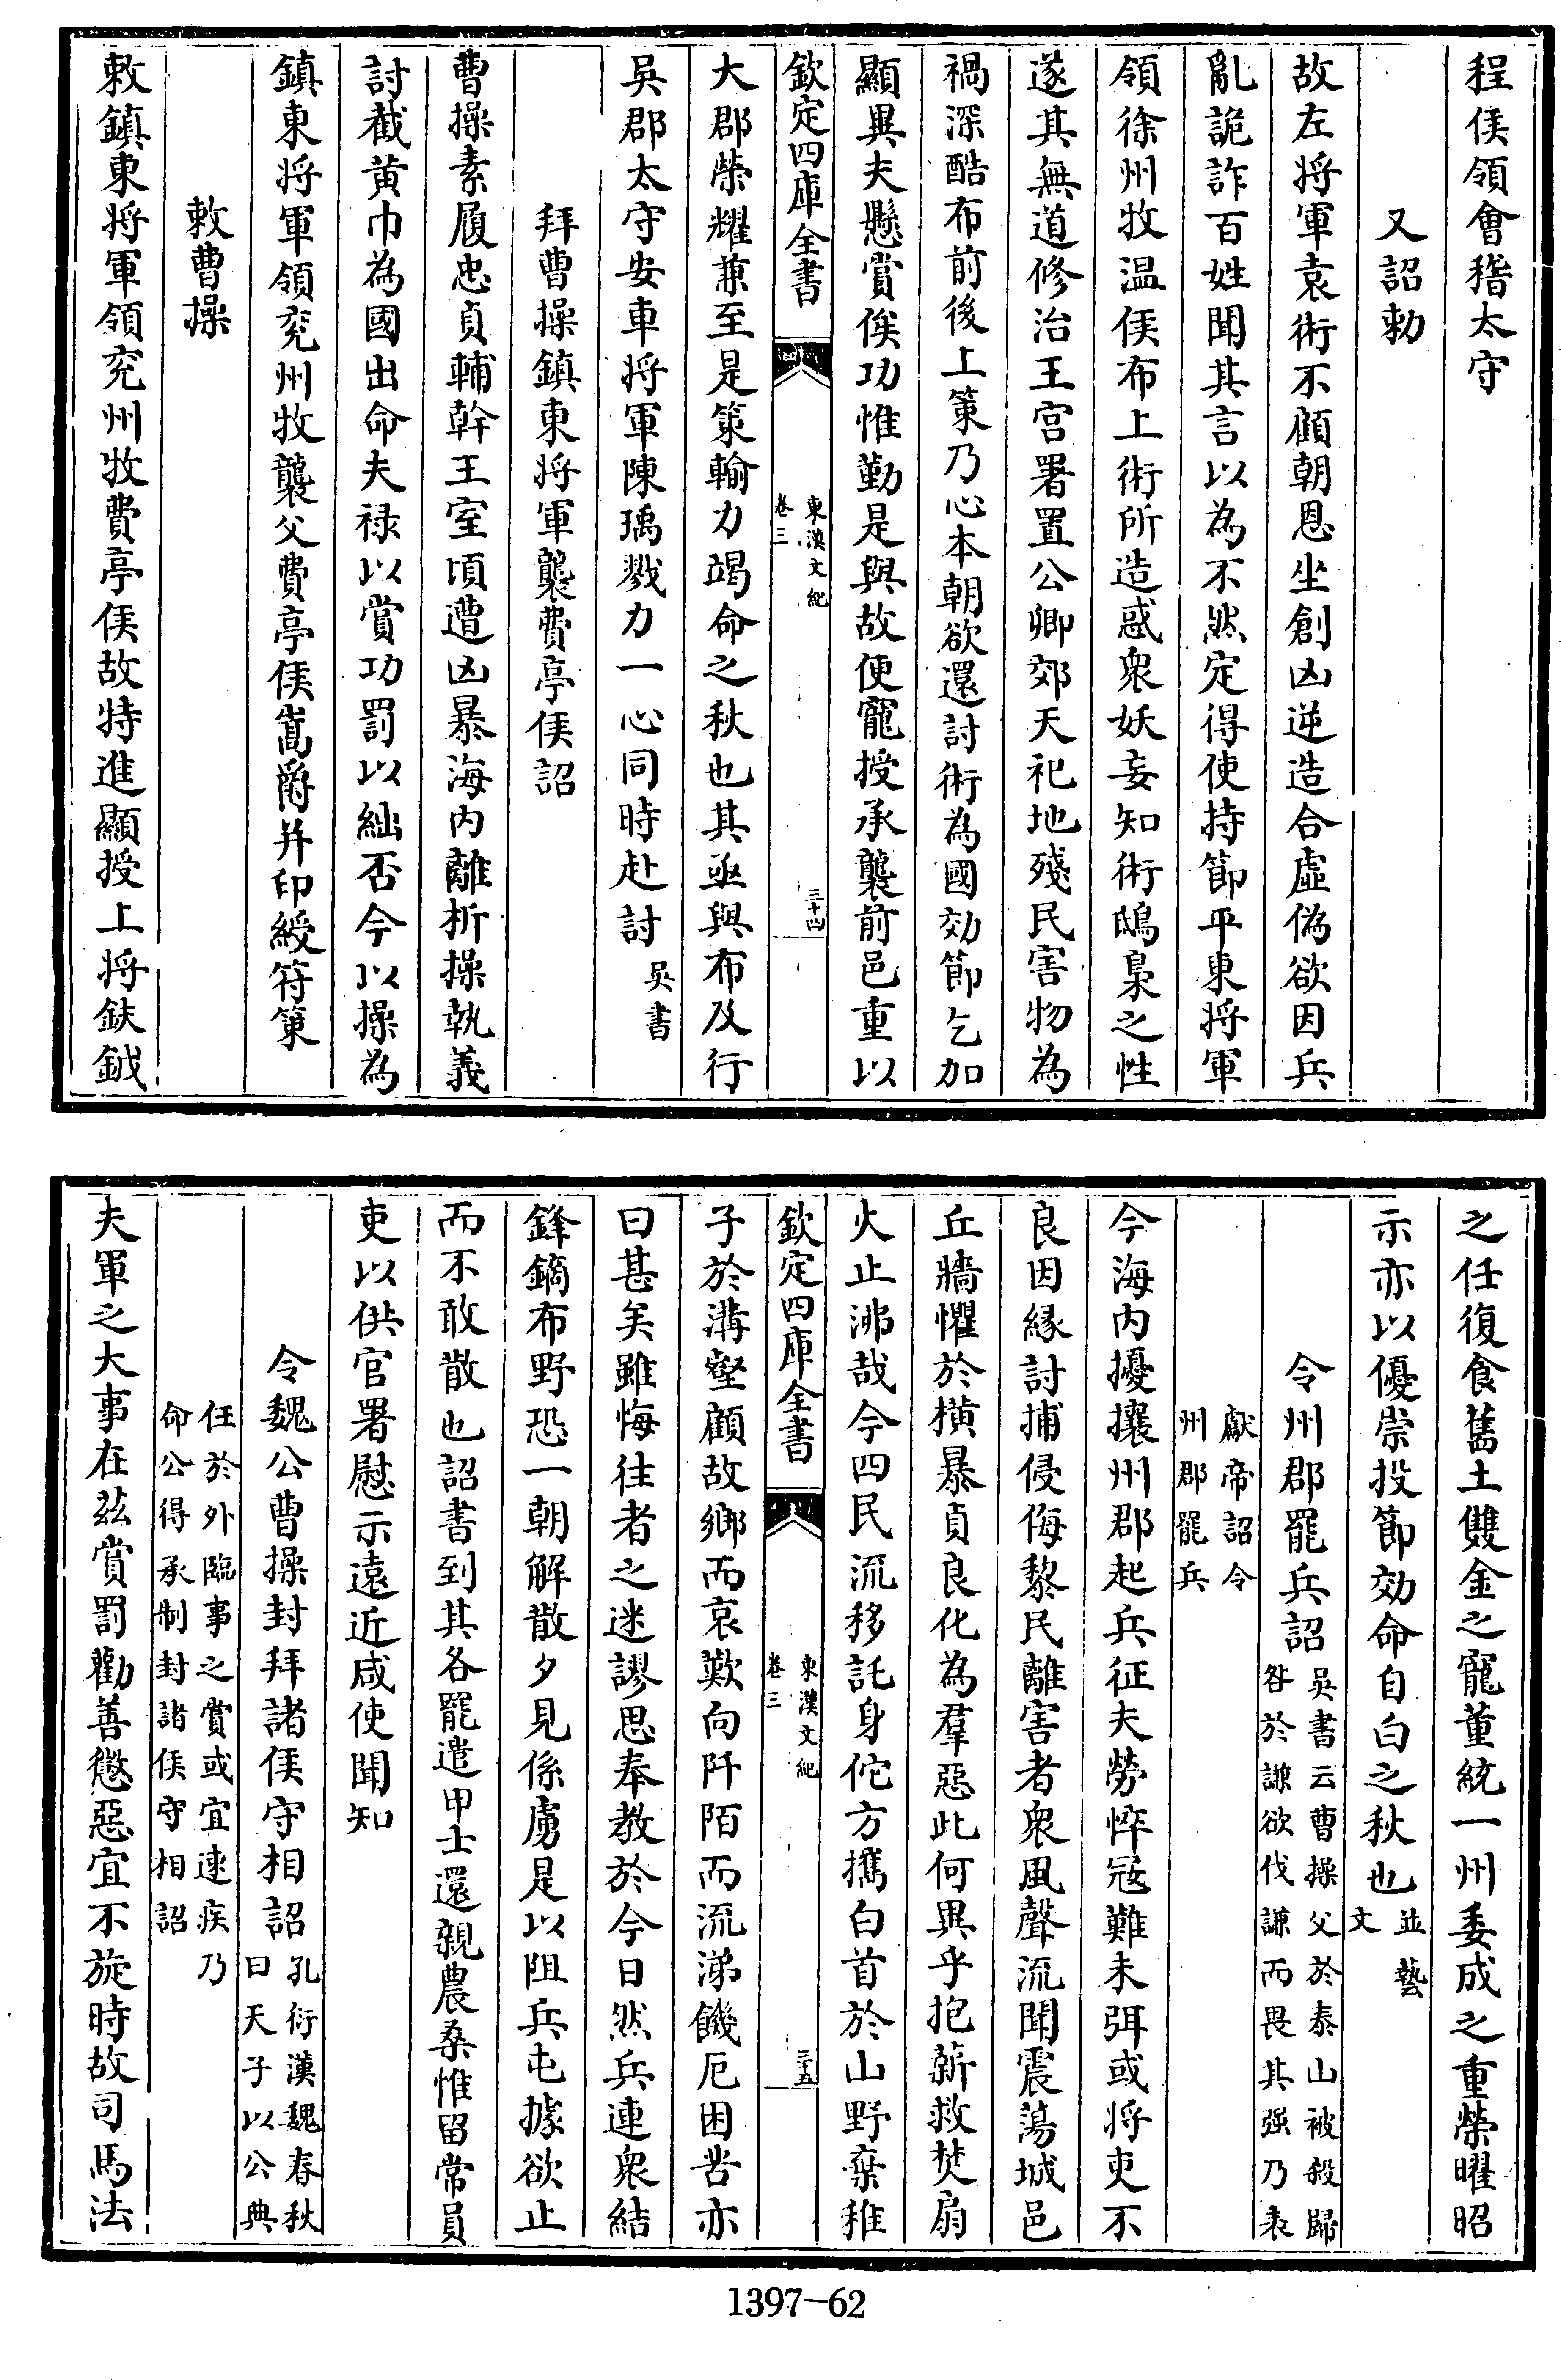 程侯領會稽太守
又詔勅
故左將軍袁術不顧朝恩坐創凶逆造合虛偽欲因兵
亂詭詐百姓聞其言以為不然定得使持節平東將軍
領徐州牧温侯布上術所造惑衆妖妄知術鴟梟之性
遂其無道修治王宫署置公卿郊天祀地殘民害物為
禍深酷布前後上策乃心本朝欲還討術為國効節乞加
顯異夫懸賞俟功惟勤是與故便寵授承襲前邑重以
欽定四庫全書
東漢文紀
卷三
三十四
大郡榮耀兼至是策輸力竭命之秋也其亟與布及行
吳郡太守安車將軍陳瑀戮力一心同時赴討吳書
拜曹操鎮東將軍襲費亭侯詔
曹操素履忠貞輔幹王室頃遭凶暴海内離析操執義
討截黄巾為國出命夫禄以賞功罰以絀否今以操為
鎮東將軍領兖州牧襲父費亭侯嵩爵并印綬符策
敕曹操
敕鎮東將軍領兖州牧費亭侯故特進顯授上將鈇鉞
之任復食舊土雙金之寵董統一州委成之重榮曜昭
示亦以優崇投節効命自白之秋也並藝
文
令州郡罷兵詔吳書云曹操父於泰山被殺歸
咎於謙欲伐謙而畏其強乃表
獻帝詔令
州郡罷兵
今海内擾攘州郡起兵征夫勞悴寇難未弭或將吏不
良因緣討捕侵侮黎民離害者衆風聲流聞震蕩城邑
丘牆懼於橫暴貞良化為羣惡此何異乎抱薪救焚扇
火止沸哉今四民流移託身佗方攜白首於山野棄稚
欽定四庫全書
東漢文紀
卷三
三十五
子於溝壑顧故鄉而哀歎向阡陌而流涕饑厄困苦亦
曰甚矣雖悔往者之迷謬思奉教於今日然兵連衆結
鋒鏑布野恐一朝解散夕見係虜是以阻兵屯據欲止
而不敢散也詔書到其各罷遣甲士還親農桑惟留常員
吏以供官署慰示遠近咸使聞知
令魏公曹操封拜諸侯守相詔孔衍漢魏春秋
曰天子以公典
任於外臨事之賞或宜速疾乃
命公得承制封諸侯守相詔
夫軍之大事在茲賞罰勸善懲惡宜不旋時故司馬法
1397-62